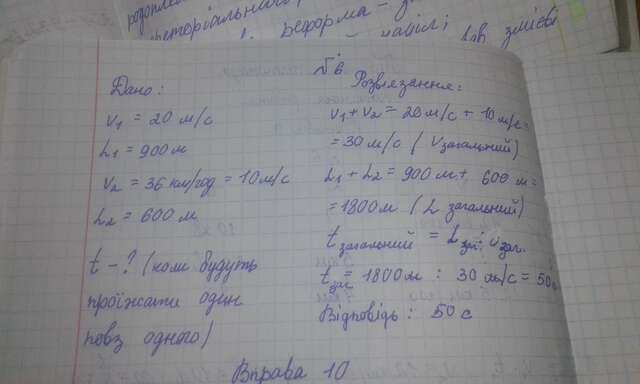 реформа -
змієві
№6
Дано:
V₁ = 20 м/с
L₁ = 900 м
V₂ = 36 км/год = 10 м/с
L₂ = 600 м
t - ? (коли будуть
проїжати один
повз одного)
Розв'язання:
V₁ + V₂ = 20 м/с + 10 м/с =
= 30 м/с (V загальний)
L₁ + L₂ = 900 м + 600 м =
= 1800 м (L загальний)
t загальний = L заг : V заг.
t заг = 1800 м : 30 м/с = 50 с
Відповідь: 50 с
Вправа 10